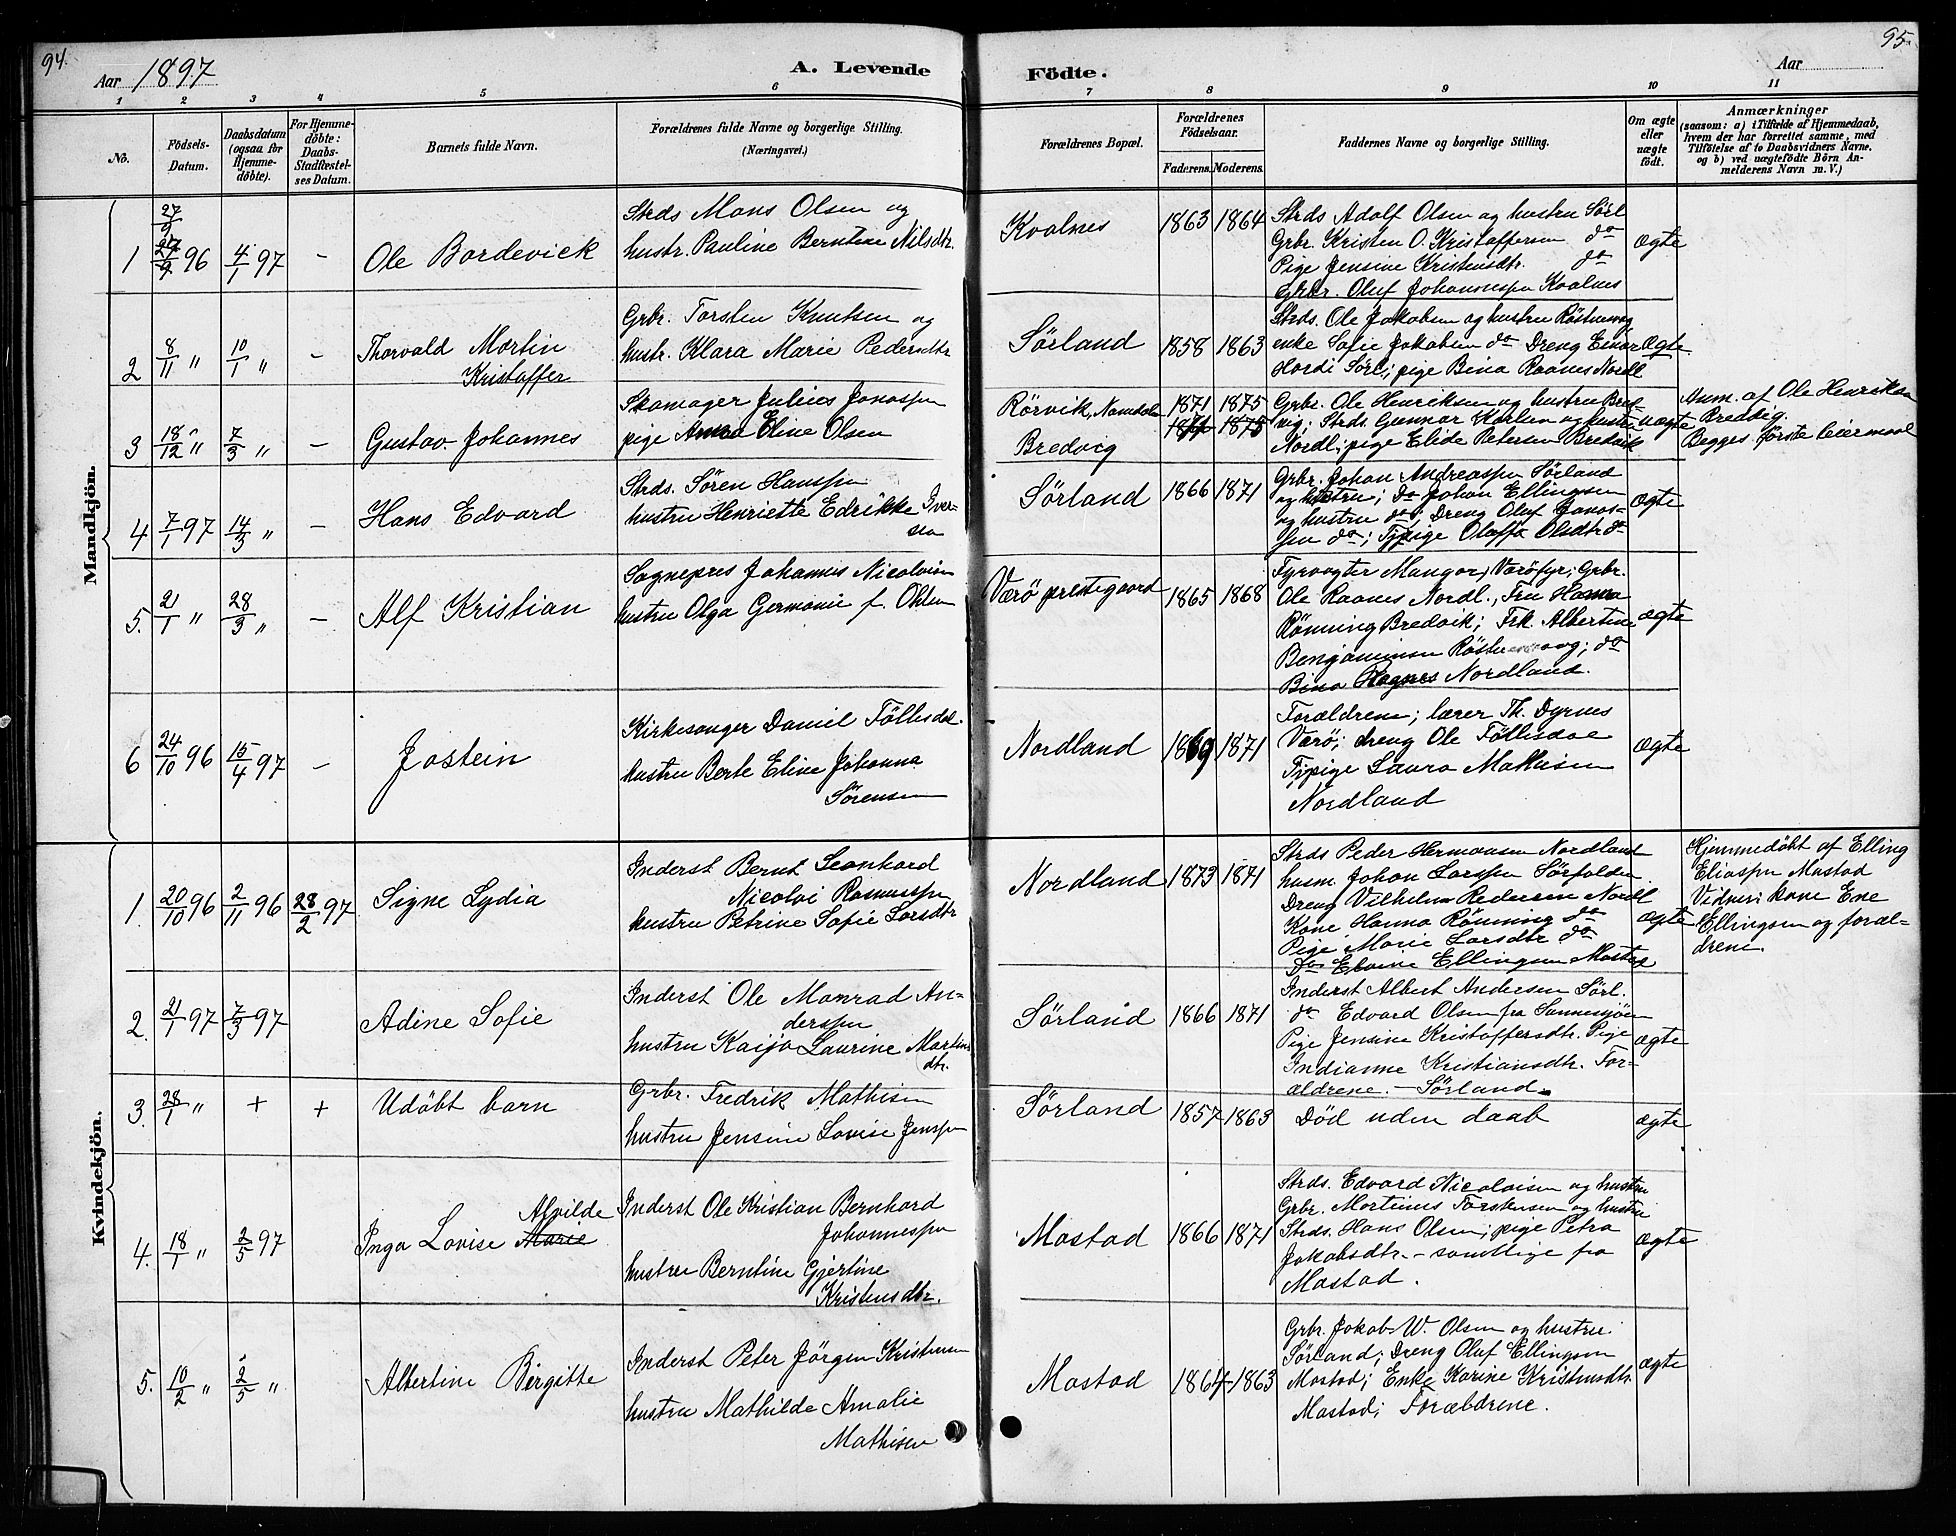 94.
95.
Aar 1897
A. Levende
Födte.
Aar
1 2 3 4 5 6 7 8 9 10 11
No.
Födsels-
Datum.
Daabsdatum
(ogsaa for
Hjemme-
döbte).
For Hjemme-
döbte:
Daabs-
Stadfæstel-
ses Datum.
Barnets fulde Navn.
Forældrenes fulde Navne og borgerlige Stilling.
(Næringsvei.)
Forældrenes Bopæl.
Forældrenes
Födselsaar.
Faderens. Moderens.
Faddernes Navne og borgerlige Stilling.
Om ægte
eller
uægte
födt.
Anmærkninger
(saasom: a) i Tilfælde af Hjemmedaab,
hvem der har forrettet samme, med
Tilföielse af to Daabsvidners Navne,
og b) ved uægtefödte Börn An-
melderens Navn m. V.)
Mandkjön.
27/9
1 27/9 96 4/1 97 - Ole Bordevick
Strds Mons Olsen og
hustr. Pauline Berntine Nilsdtr.
Kvalnes 1863 1864
Strds Adolf Olsen og hustru Sörl
Grbr. Kristen O. Kristoffersen do
Pige Jensine Kristensdtr. do
Grbr. Oluf Johannessen Kvalnes
ægte
2 8/11 " 10/1 " - Thorvald Martin
Kristoffer
Grbr. Torsten Knutsen og
hustr. Klara Marie Pedersdtr
Sörland 1858 1863
Strds. Ole Jakobsen og hustru Röstnesvag
enke Sofie Jakobsen do Dreng Einar
Hardi Sörl; pige Bina Raanes Nordl
ægte
3 18/12 " 7/3 " - Gustav Johannes
Skomager Julius Jonassen
pige Anna Eline Olsen
Rörvik, Namdalen
Bredvig
1871 1875
1871 1875
Grbr. Ole Henriksen og hustru Bred-
vig; Strds. Gunnar Karlsen og hustru
Nordl. pige Elide Petersen Bredvik
uægte
Anm. af Ole Henriksen
Bredvig.
Begges förste leiermaal
4 7/1 97 14/3 " - Hans Edvard
Strds. Sören Hanssen
hustru Henriette Edrikke Iver-
sen
Sörland 1866 1871
Grbr. Johan Andreassen Sörland
og hustru; do Johan Ellingsen
og hustru do; Dreng Oluf Jonas-
sen do; Tjpige Olaffa Olsdtr do
ægte
5. 21/1 " 28/3 " - Alf Kristian
Sognepres Johannes Nicolaisen
hustru Olga Germanie f. Ohlsen
Værö prestegaard 1865 1868
Fyrvogter Mangor, Værö fyr; Grbr.
Ole Raanes Nordl., Fru Hanna
Rönning Bredvik; Frk. Albertine
Benjaminsen Röstnesvag; do
Bina Hagnes Nordland.
ægte
6 24/10 96 15/4 97 - Jostein
Kirkesanger Daniel Föllesdal
hustru Berte Eline Johanna
Sörensen
Nordland 1869 1871
Forældrene; lærer Th. Dyrnes
Værö; dreng Ole Föllesdal
Tjpige Laura Mathisen
Nordland
ægte
Kvindekjön.
1. 20/10 96 2/11 96 28/2 97 Signe Lydia
Inderst Bernt Leonhard
Nicolai Rasmussen
hustru Petrine Sofie Larsdtr
Nordland 1873 1871
Strds Peder Hermansen Nordland
husm. Johan Larssen Sörfolden.
Dreng Vilhelm Pedersen Nordl
Kone Hanna Rönning do
Pige Marie Larsdtr do
do Elvine Ellingsen Mostad
ægte
Hjemmedöbt af Elling
Eliassen Mostad
Vidner: kone Ene
Ellingsen og foræl-
drene.
2. 21/1 97 7/3 97 Adine Sofie
Inderst Ole Monrad An-
derssen
hustru Kaija Laurine Martins
dtr.
Sörland 1866 1871
Inderst Albert Andersen Sörl.
do Edvard Olsen fra Sannesjöen
Pige Jensine Kristoffersdtr. Pige
Indianne Kristiansdtr. For-
ældrene. - Sörland.
ægte
3. 28/1 " + + Udöbt barn
Grbr. Fredrik Mathisen
hustru Jensine Lovise Jenssen
Sörland 1857 1863
Död uden daab
ægte
4. 18/1 " 2/5 97 Inga Lovise Marie
Alvilde
Inderst Ole Kristian Bernhard
Johannessen
hustru Berntine Gjertine
Kristensdtr.
Mostad 1866 1871
Strds. Edvard Nicolaisen og hustru
Grbr. Martinus Torstensen og hustru
Strds. Hans Olsen; pige Petra
Jakobsdtr. - samtlige fra
Mostad.
ægte
5. 10/2 " 2/5 " Albertine Birgitte
Inderst Peter Jörgen Kristensen
hustru Mathilde Amalie
Mathisen
Mostad 1864 - 1863
Grbr. Jakob W. Olsen og hustru
Sörland; Dreng Oluf Ellingsen
Mostad; Enke Karine Kristensdtr.
Mostad; Forældrene.
ægte